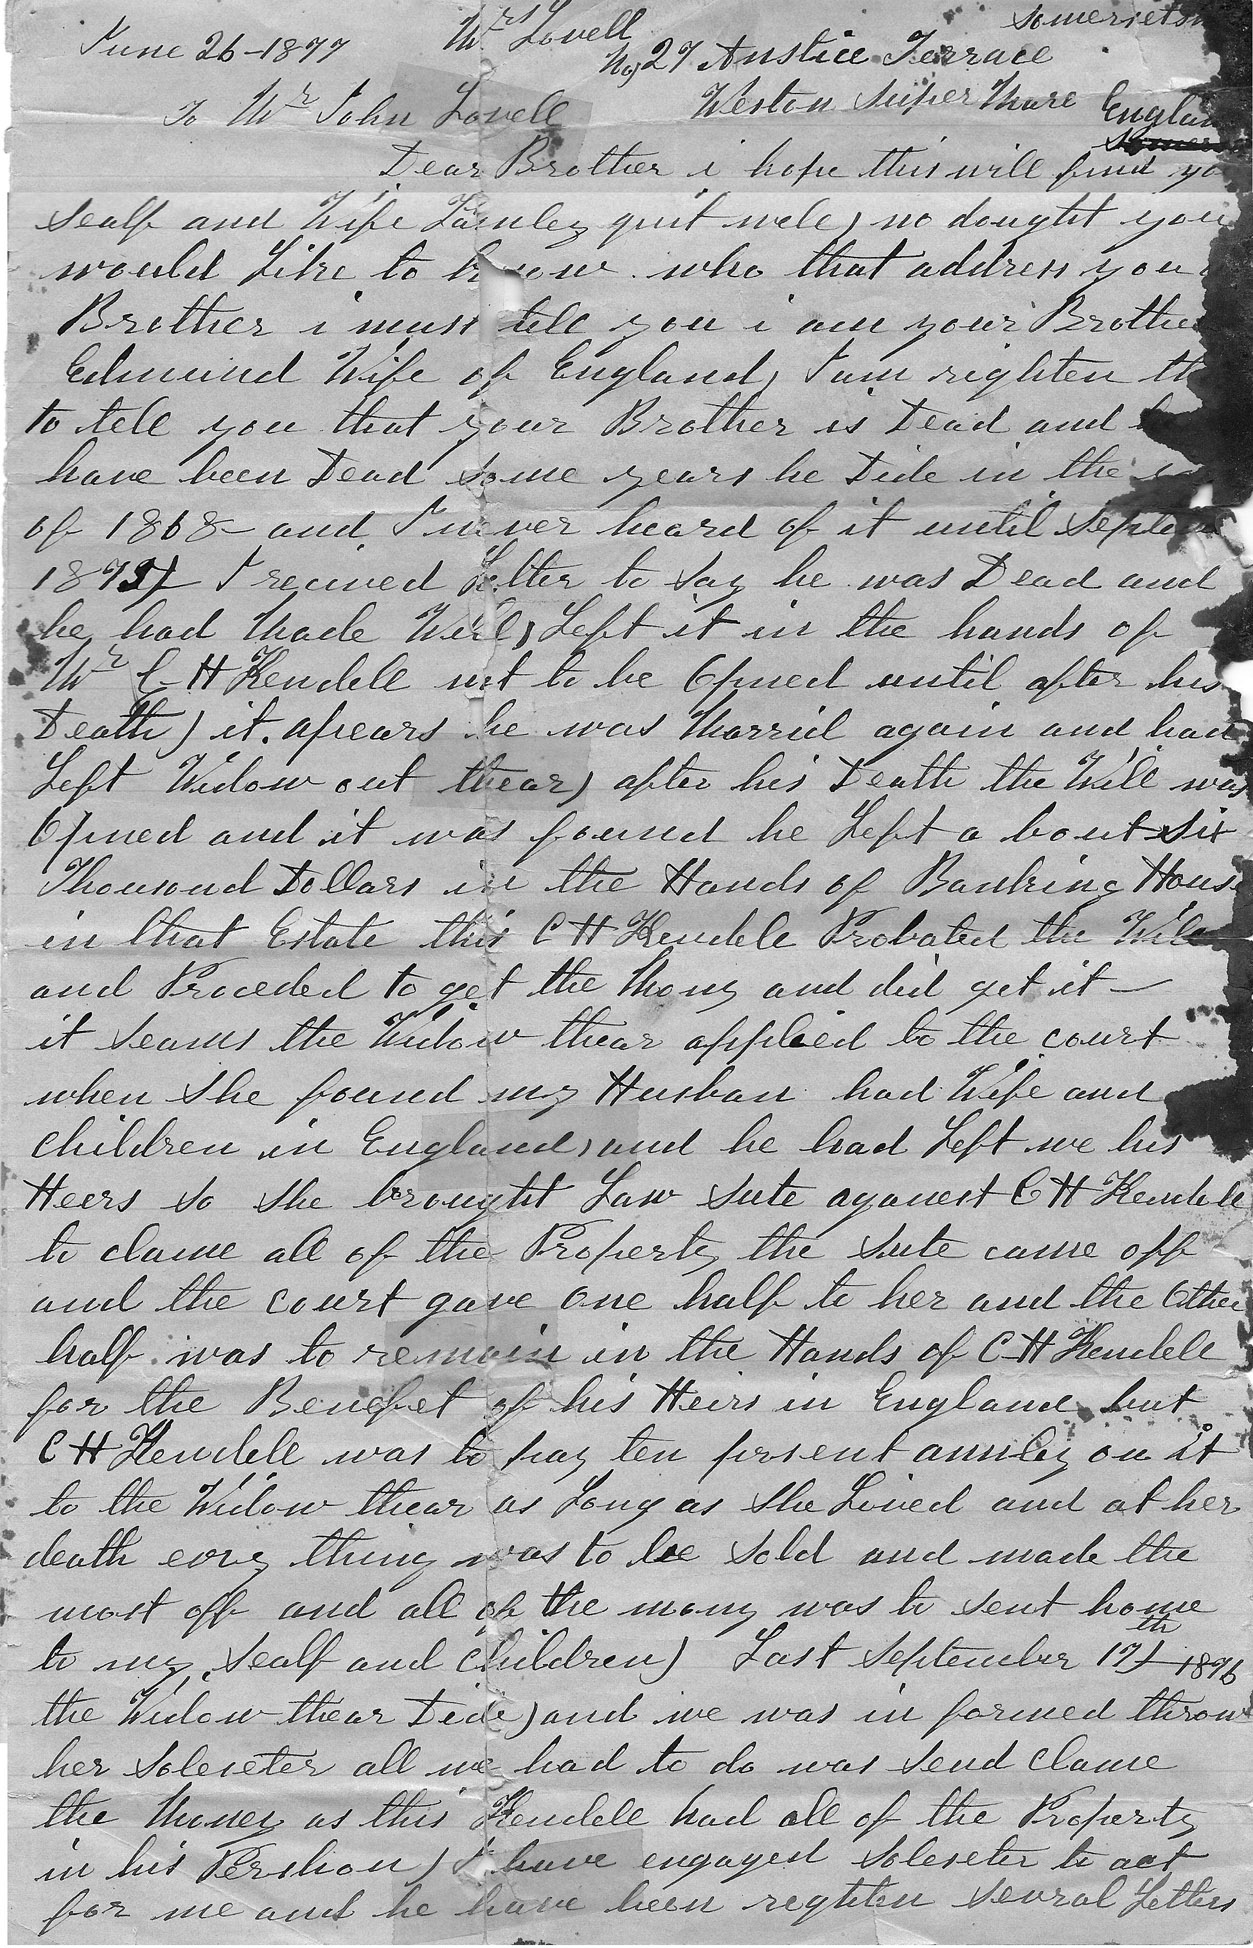 June 26-1877
Mrs Lovell
Somersets
No 27 Anstice Terrace
Weston Super Mare
England
To Mr John Lovell
Dear Brother i hope this will find yo
sealf and Wife Famley quit wele) no dought you
would Like to know who that address you
Brother i must tele you i am your Brothe
Edmund Wife of England) I am righten th
to tele you that your Brother is Dead and h
have been Dead some years he Dide in the
of 1868 and I never heard of it until Septem
1875 I recived Letter to say he was Dead and
he had Made Will) Left it in the hands of
Mr C H Kendele not to be Opned until after his
Death) it. apears he was Marrid again and had
Left Widow out thear) after his Death the Will was
Opned and it was found he Left a bout six
Thousond Dollars in the Hands of Banking House
in that Estate this C H Kendele Probated the Wile
and Proceded to get the Mony and did get it
it seams the Widow thear applied to the court
when she found my Husban had Wife and
Children in England) and he had Left we his
Heers so she brought Law sute aganest C H Kendele
to clame all of the Property the sute came off
and the court gave one half to her and the Other
half was to remain in the Hands of C H Kendele
for the Benefet of his Heirs in England but
C H Kendele was to pay ten prsent annley on it
to the Widow thear as Long as she Lived and at her
death evry thing was to be sold and made the
most off and all of the mony was to sent home
to my sealf and Children) Last September 17th 1876
the Widow thear Dide) and we was in formed throw
her soleseter all we had to do was send clame
the Money as this Kendele had all of the Property
in his Pershon) I have engaged soleseter to act
for me and he have been reghten sevral Letters